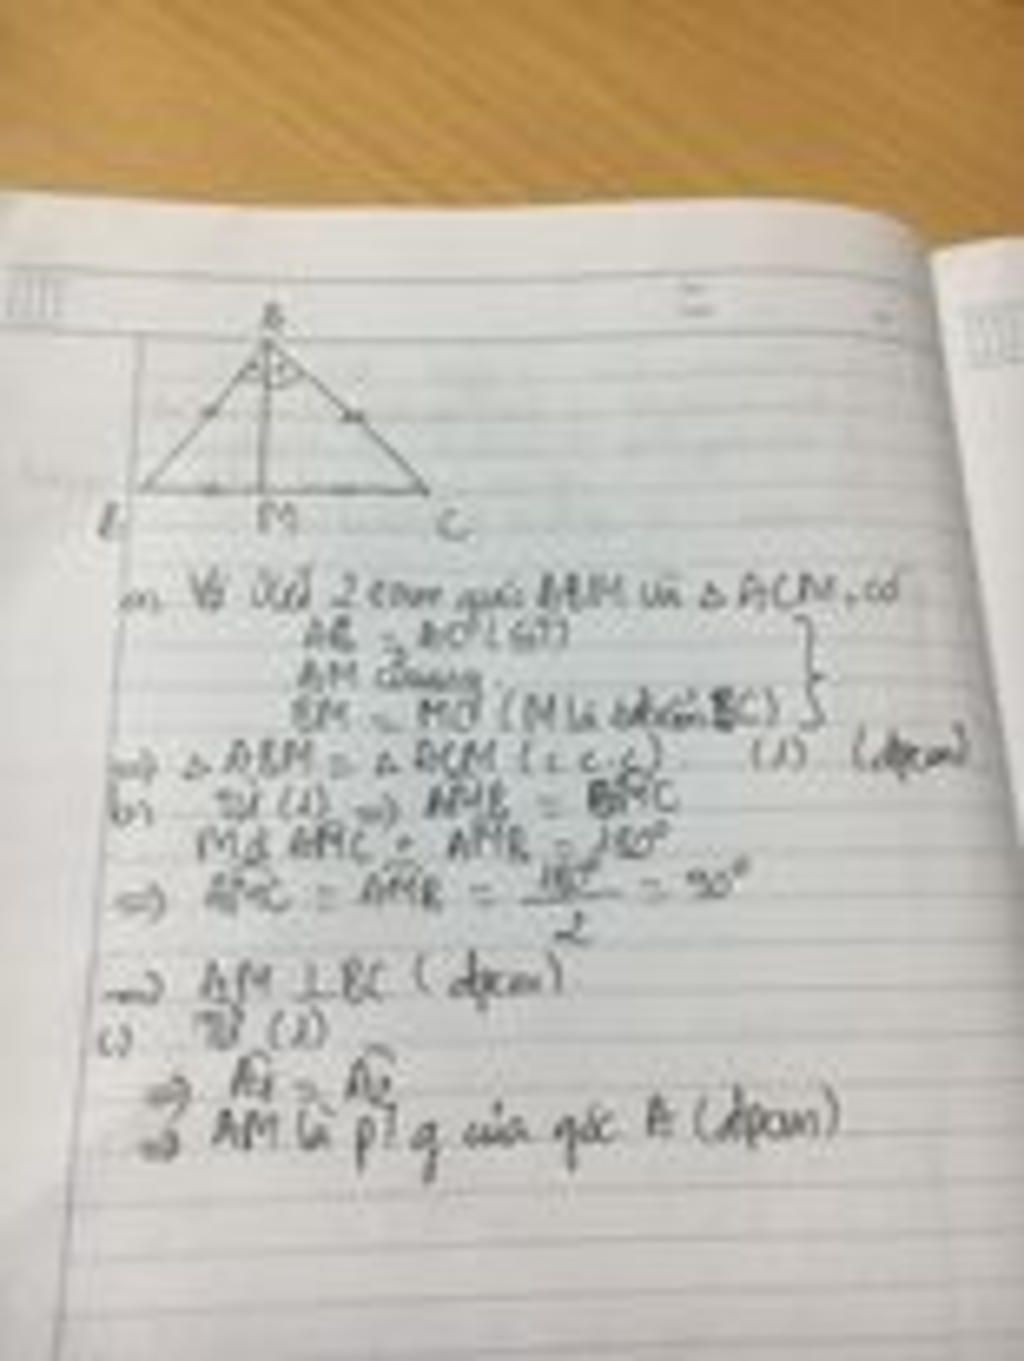 B M C
a, Xét 2 tam giác ABM và △ ACM, có
AB = AC (GT)
AM chung
BM = MC (M là BC)
=> △ ABM = △ ACM (c.c.c) (1) (đpcm)
b, Từ (1) => AMB = BMC
Mà AMC + AMB = 180°
=> AMC = AMB = 180°/2 = 90°
=> AM ⊥ BC (đpcm)
c) Từ (1)
=> A1 = A2
=> AM là p/g của góc A (đpcm)